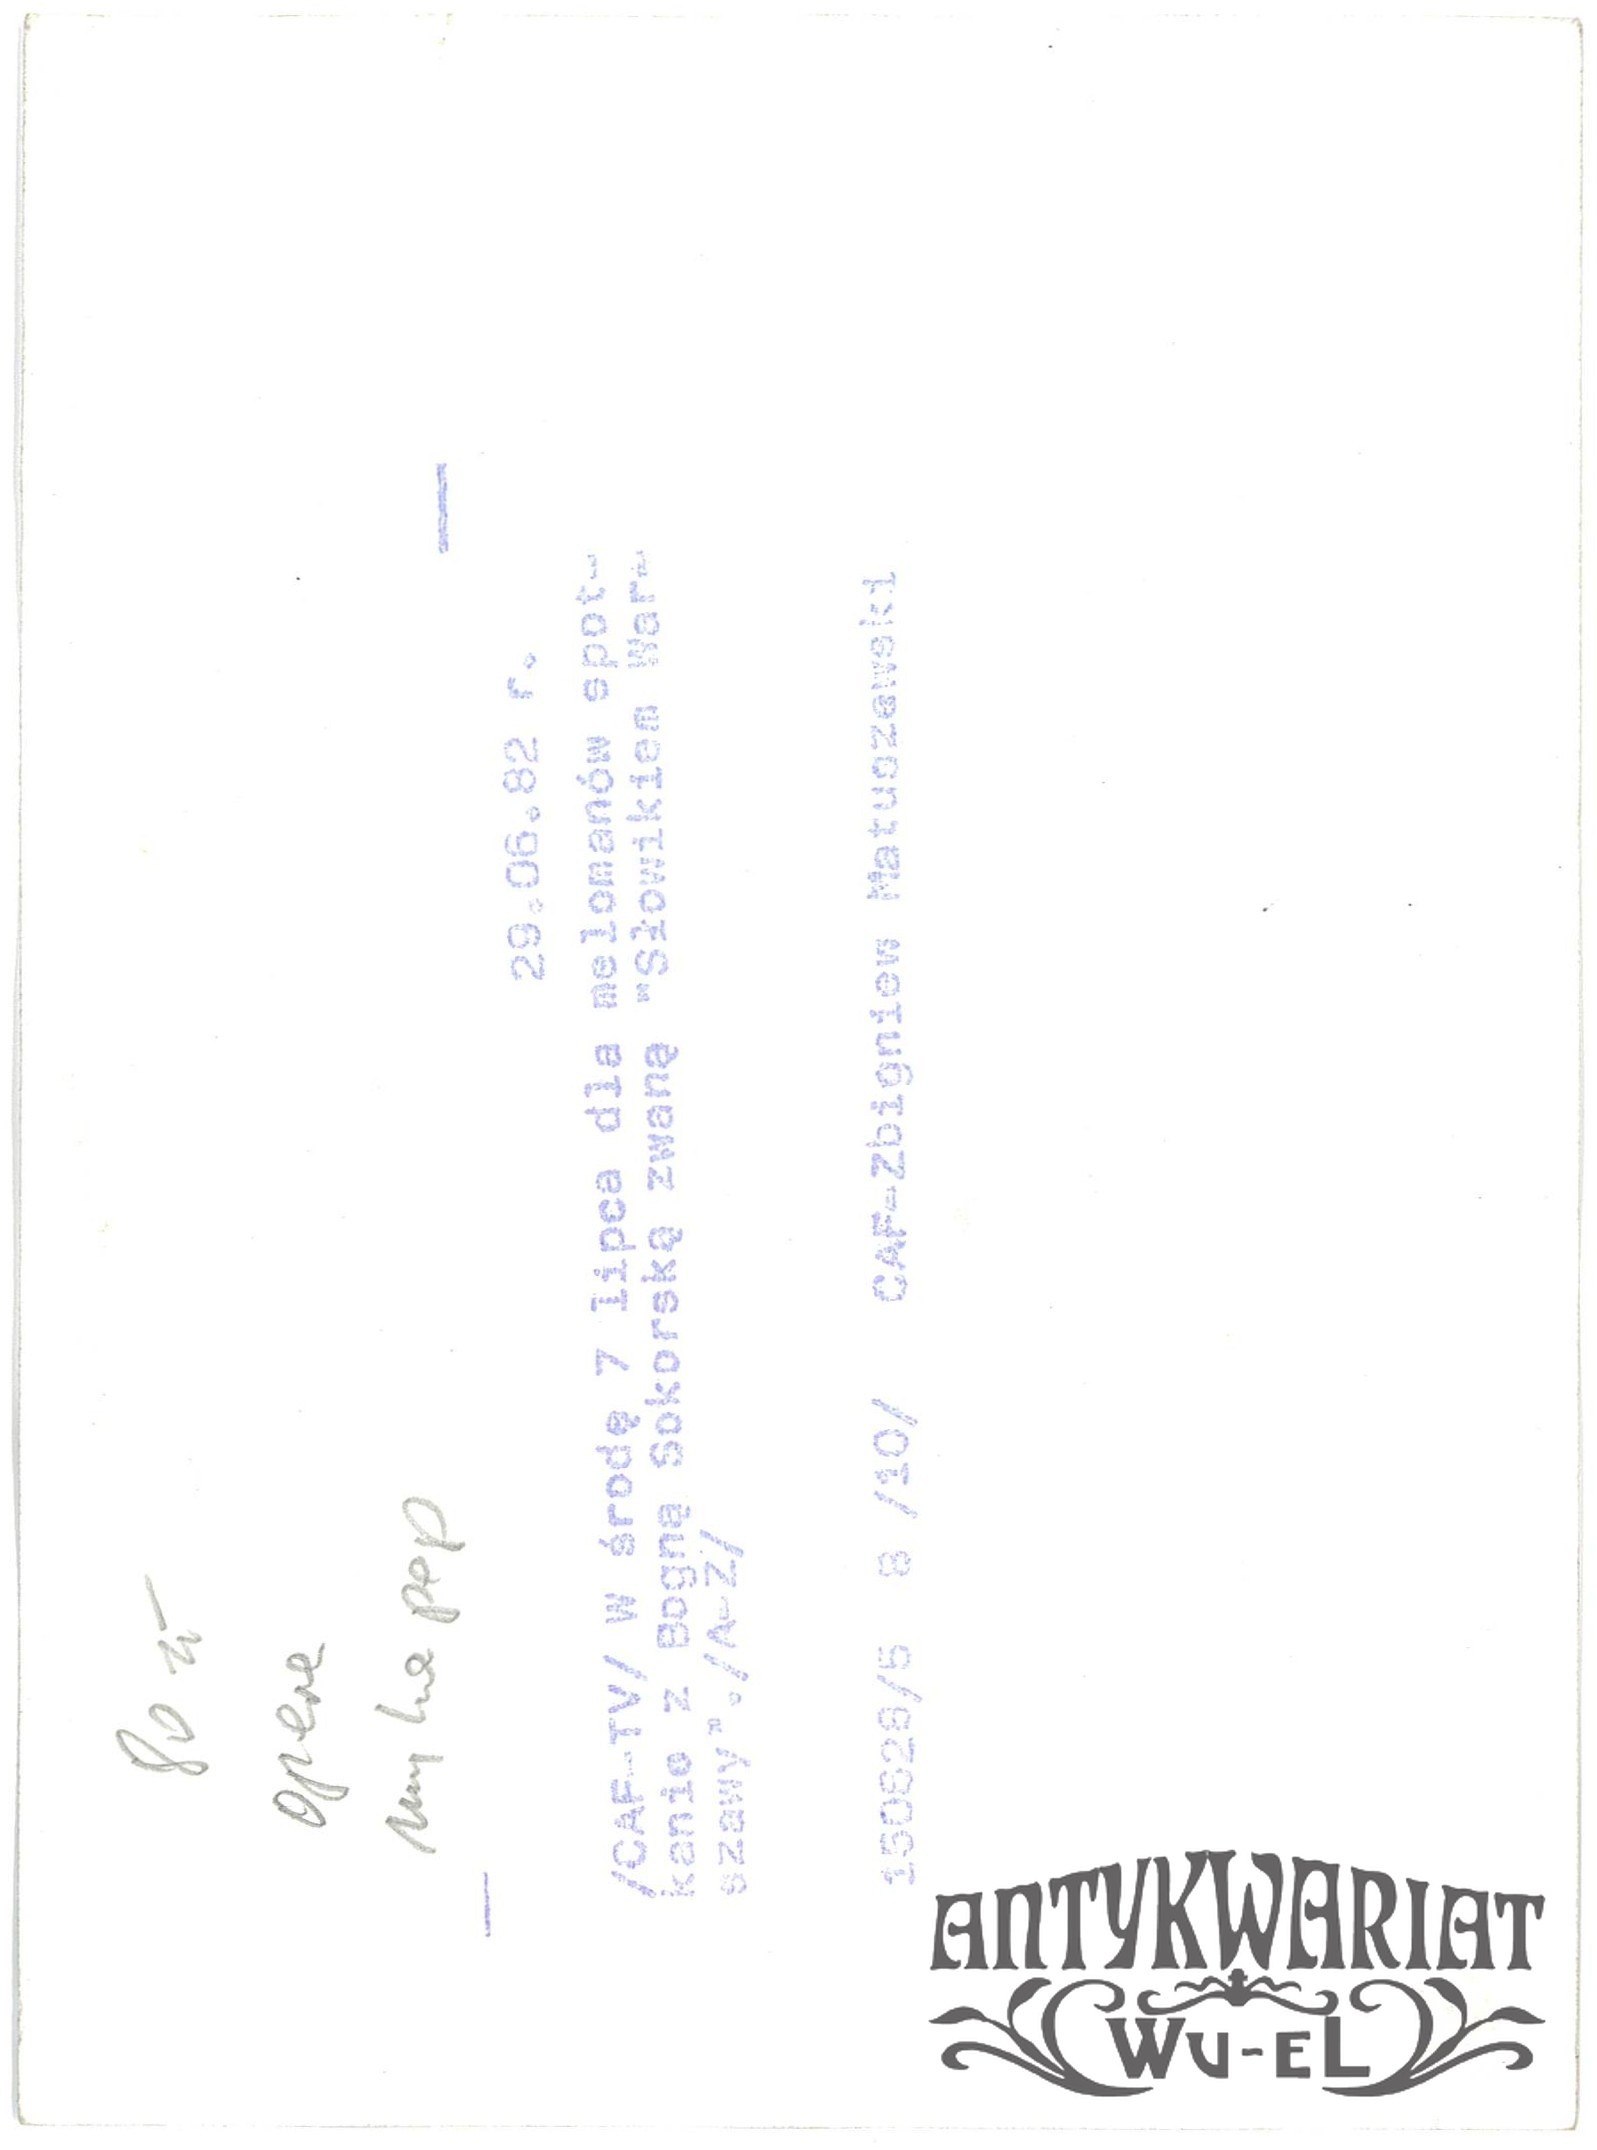 29.06.82 r.
/CAF-TV/ W środę 7 lipca dla melomanów spot-
kanie z Bogną Sokorską zwaną "Słowikiem War-
szawy"./A-Z/
150629/5 8 /10/ CAF-Zbigniew Matuszewski
opera
ANTYKWARIAT
WU-EL